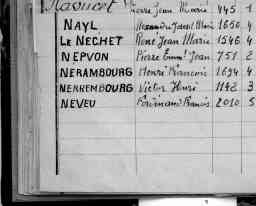 Pierre Jean Marie 445 1
NAYL 1656 4
LE NECHET René Jean Marie 1546 4
NEPVON Pierre Emml Jean 751 2
NERAMBOURG Henri François 1694 4
NERREMBOURG Victor Henri 1142 3
NEVEU Ferdinand Francis 2010 5